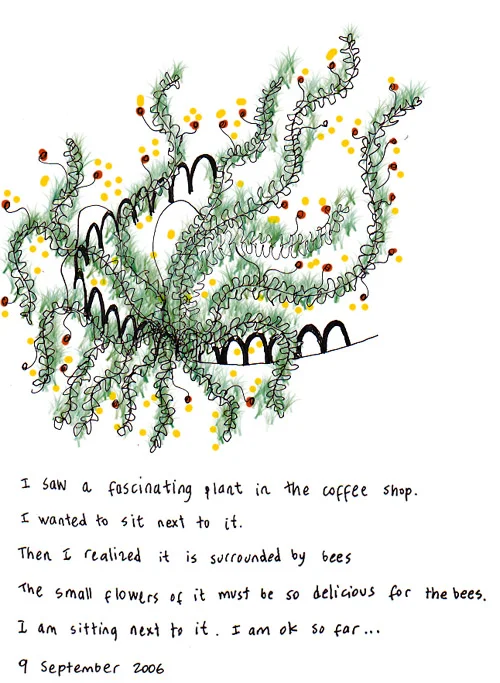 I saw a fascinating plant in the coffee shop.
I wanted to sit next to it.
Then I realized it is surrounded by bees
The small flowers of it must be so delicious for the bees.
I am sitting next to it. I am ok so far...
9 September 2006